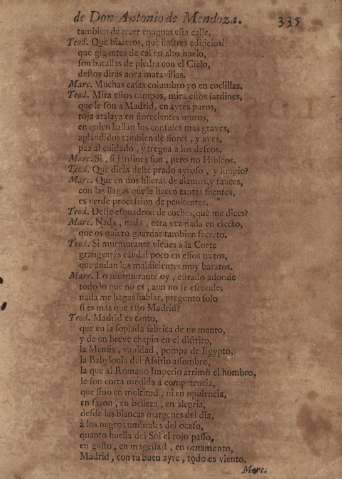 de Don Antonio de Mendoza. 335
tambien de aver
esta calle.
Teod. Que bizarros, que ilustres edificios!
que gigantes de cal en alto buelo,
son batallas de piedra con el Cielo,
destos dirás aora maravillas.
Marc. Muchas casas columbro yo en cosillas.
Teod. Mira estos campos, mira estos jardines,
que le son à Madrid, en ayres puros,
roja atalaya en florecientes muros,
en quien hallan los
mas graves,
tambien de flores, y aves,
paz al cuidado, y tregoa à los deseos.
Marc. Si, si jardines son, pero no Hibleos.
Teod. Que dirás deste prado ayroso, y limpio?
Marc. Que en dos hileras de alamos, y sauces,
con las llagas que le hazen tantas fuentes,
es verde procession de penitentes.
Teod. Deste esquadron de coches, què me dices?
Marc. Nada, nada, otra vez nada en efecto,
que os quiero guardar tambien secreto.
Teod. Si murmurante vienes à la Corte
grangearas caudal poco en essos tratos,
que andan los maldicientes muy baratos.
Marc. Lo
oy, estraño adonde
todo lo que no es, aun no se esconde:
nada me hagas hablar, pregunto solo
si es mas que esto Madrid?
Teod. Madrid es tanto,
que en la soplada fabrica de un manto,
y de un breve chapin en el distrito,
la Menfis, vanidad, pompa de Egypto,
la Babylonia del Assirio assombro,
la que al Romano Imperio arrimò el hombro,
le son corta medida à competencia,
que sino en multitud, ni en opulencia,
en sazon, en belleza, en alegria,
desde las blancas margenes del dia,
à los negros umbrales del ocaso,
quanto huella del Sol el rojo passo,
en gusto, en magestad, en ornamento,
Madrid, con tu buen ayre, todo es viento.
Marc.